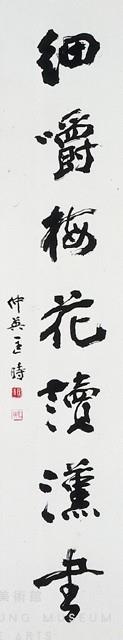 細嚼梅花讀漢書
仲英匡時
美術館
UNG MUSEUM
E ARTS